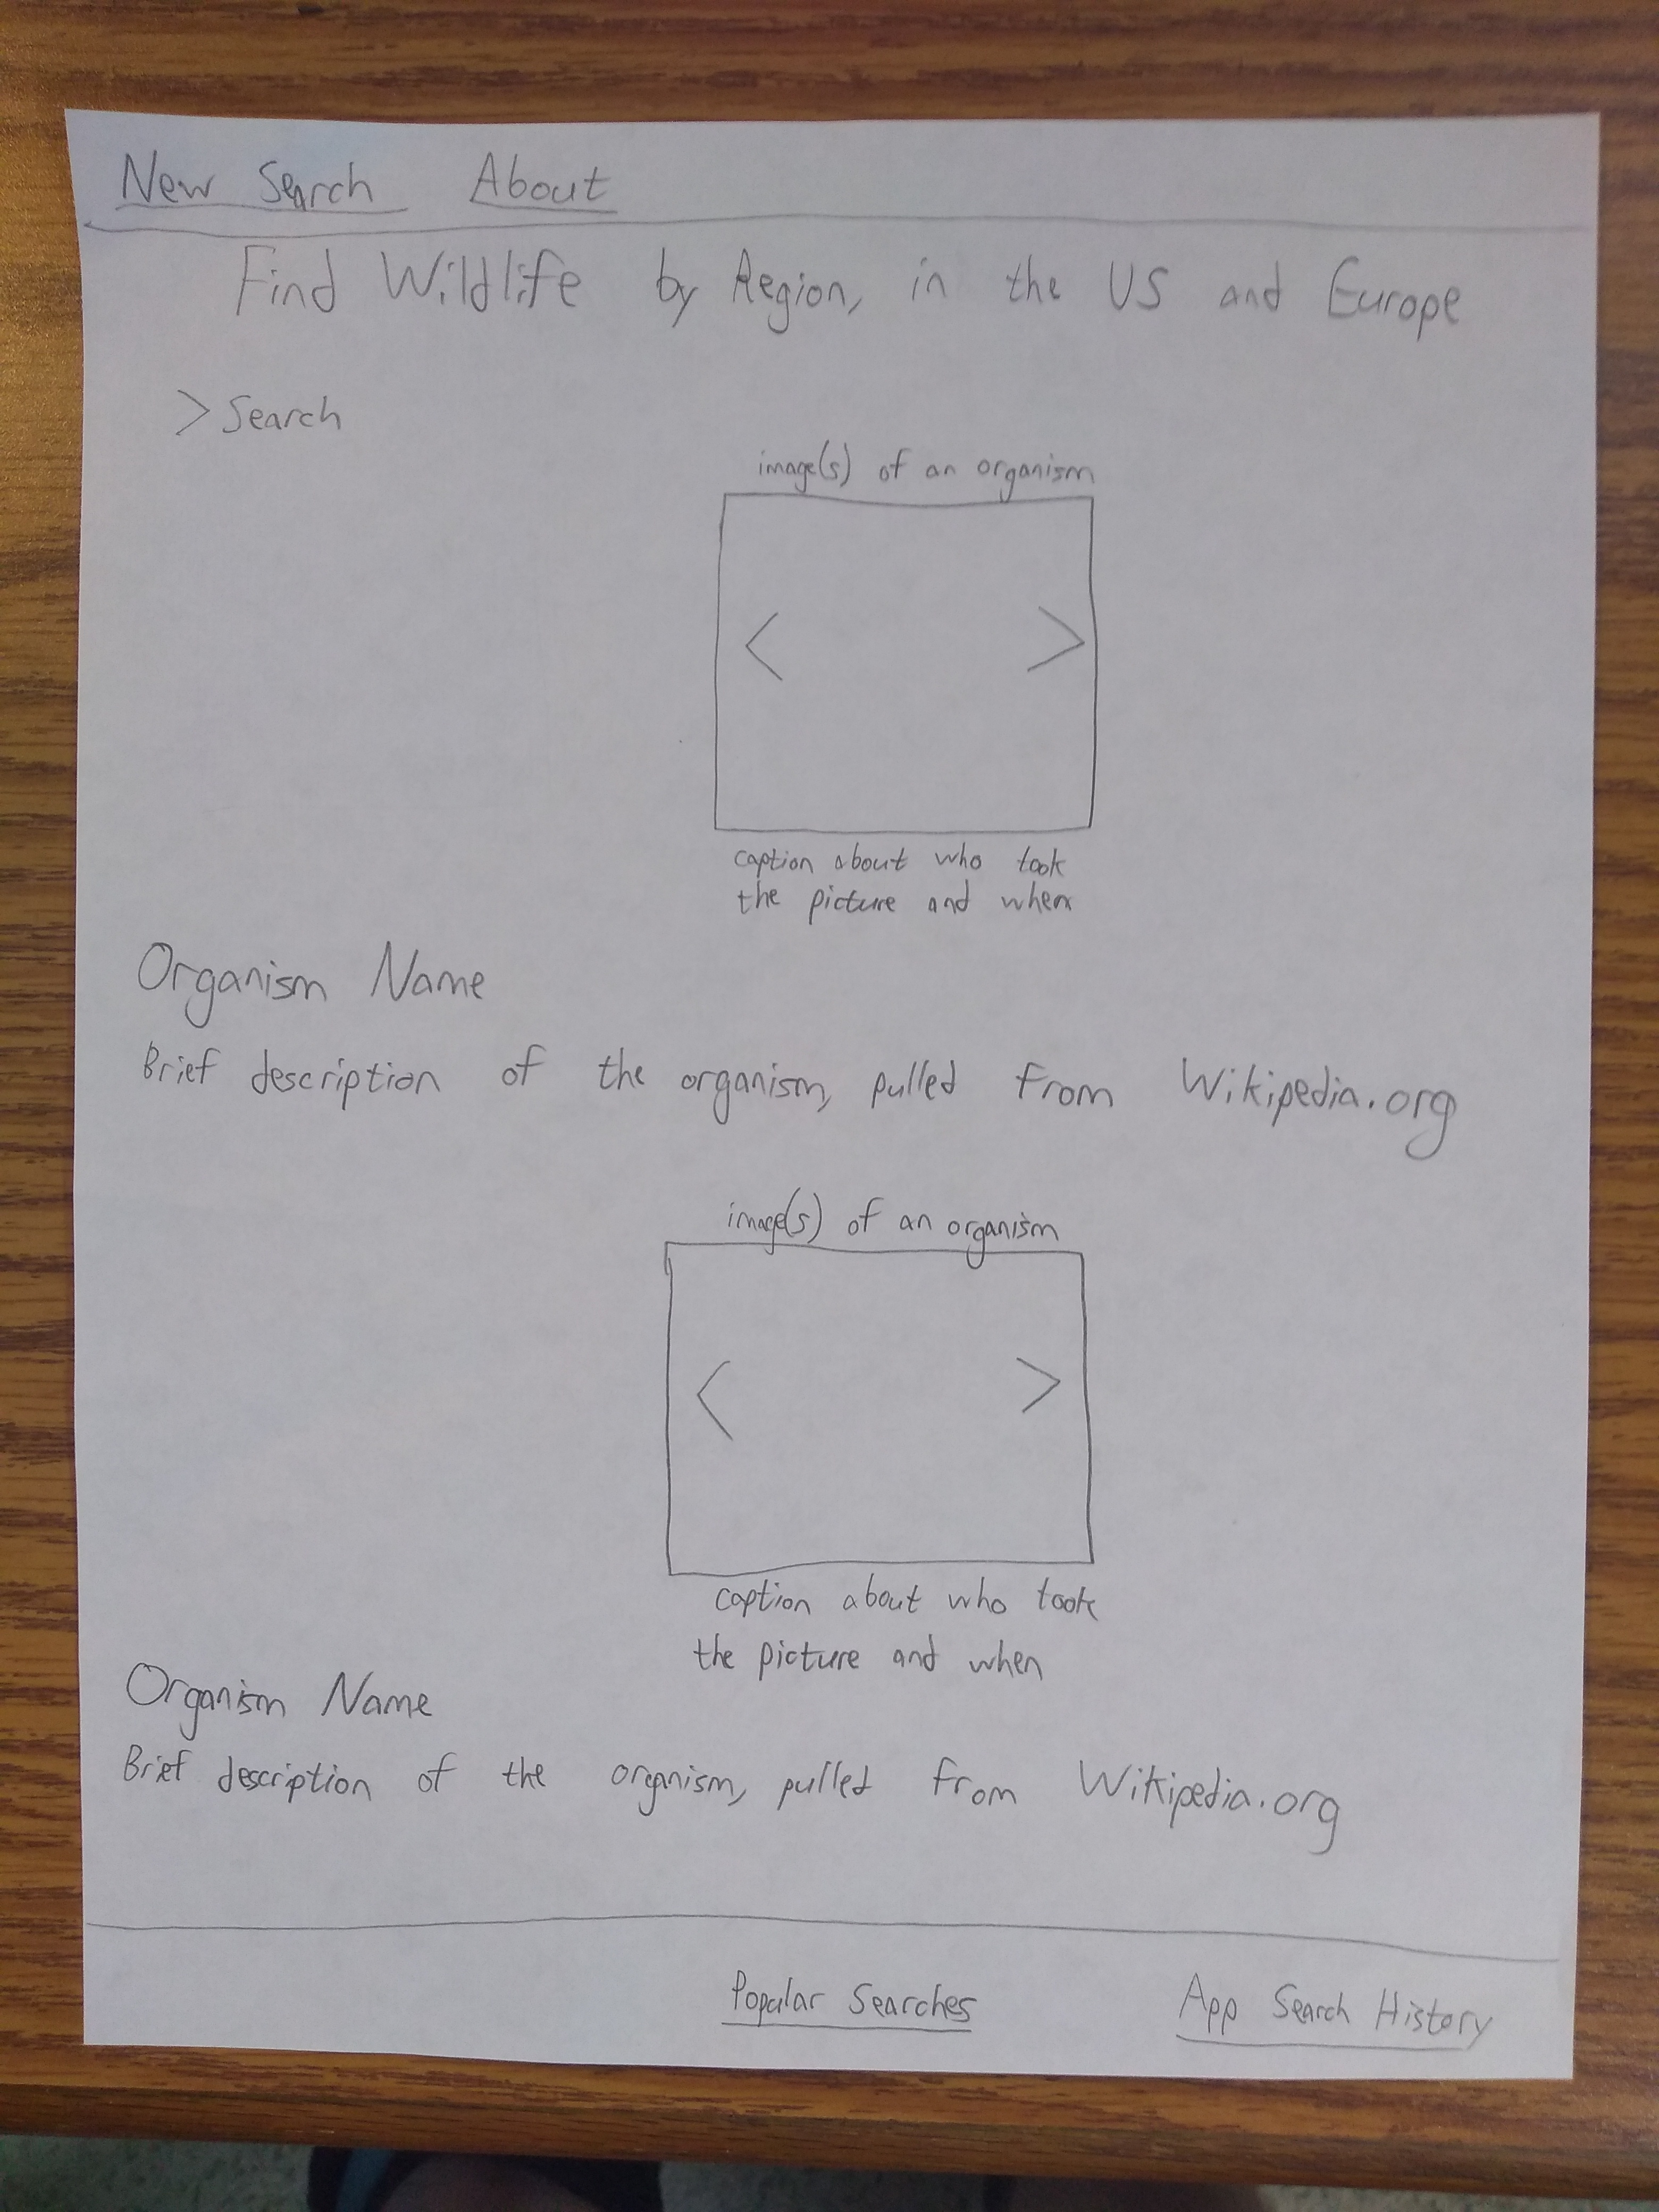 New Search About
Find Wildlife by Region, in the US and Europe
> Search
image(s) of an organism
< >
caption about who took
the picture and when
Organism Name
Brief description of the organism, pulled from Wikipedia.org
image(s) of an organism
< >
caption about who took
the picture and when
Organism Name
Brief description of the organism, pulled from Wikipedia.org
Popular Searches App Search History